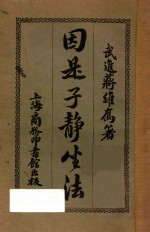 武進蔣維喬著
因是子靜坐法
上海商務印書館出版